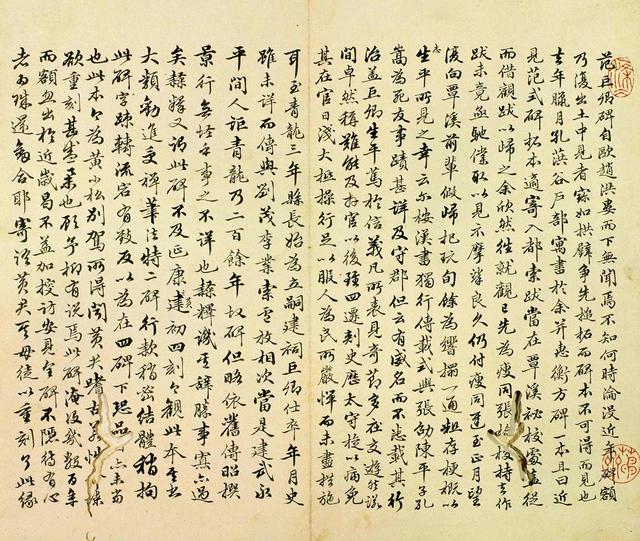 范巨卿碑自歐趙洪婁而下無聞焉不知何時淪沒近年碑額
乃復出土中見者寶如拱璧爭先搥拓而碑本不可得而見也
去年臘月孔葒谷戶部寓書於余并惠衡方碑一本且曰近
見范式碑拓本適寄入都索跋當在覃溪祕校處盍從
而借觀跋以歸之余欣然往就觀已先為瘦同張校持去作
跋未竟亟馳僮取以見示摩挲良久仍付瘦同迨至正月望
後向覃溪前輩假歸把玩旬餘為響搨一通粗存梗概以志
生平所見之幸云尔按漢書獨行傳載式與張劭陳平子孔
嵩為死友事蹟甚詳及守郡但云有威名而不悉載其行
治蓋巨卿生平篤於信義凡所表見奇節多在交遊然諾
間卓然稱難能及於官以後歷四遷刺史歷太守旋以病免
其在官日淺大抵操行足以服人為民所嚴憚而未盡措施
耳至青龍三年縣長始為立嗣建祠巨卿仕卒年月史
雖未詳而傳與劉茂李業索盧放相次當是建武永
平間人距青龍乃二百餘年故碑但略依舊傳昭撰
景行無怪乎事之不詳也隸釋譏其辭勝事寡亦過
矣隸續又謂此碑不及延康建初四刻今觀此本
大類勸進受禪筆法特二碑行款稍密結體稍拘
此碑字疎轉流宕有致反以為在四碑下恐品
也此本今為黃小松別駕所得聞黃夫嗜古
欲重刻甚盛舉也顧予抑有說焉此碑淹沒幾數百年
而額忽出於近歲曷不並加搜訪安見全碑不隱待有心
者為珠還劍合耶寄語黃夫其毋徒以重刻了此緣